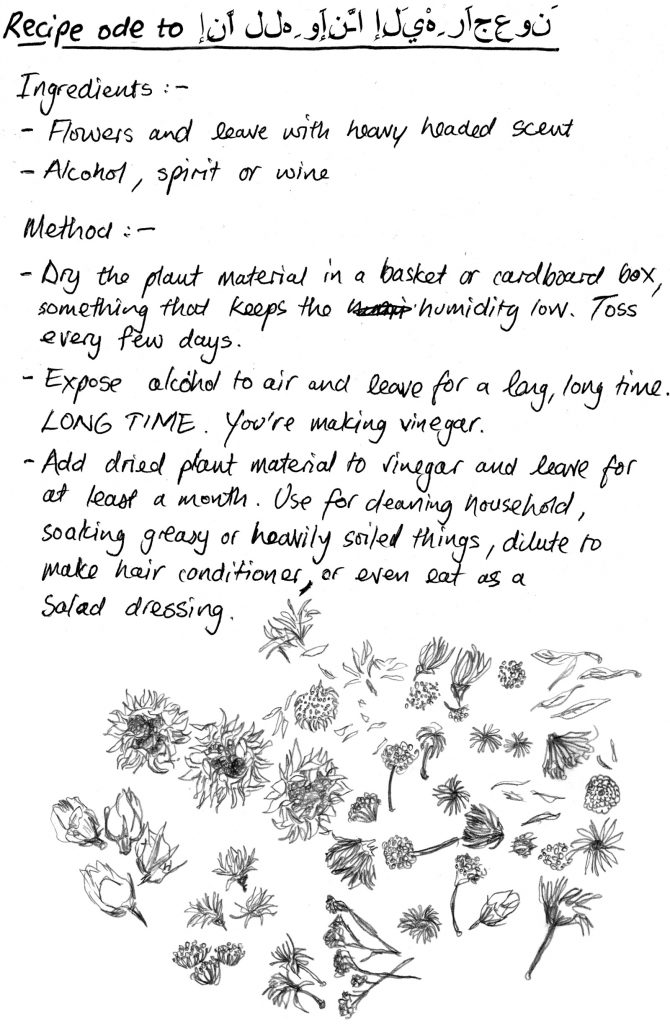 Recipe ode to إِنَّا لِلَّهِ وَإِنَّا إِلَيْهِ رَاجِعُونَ
Ingredients :-
- Flowers and leave with heavy headed scent
- Alcohol, spirit or wine
Method :-
- Dry the plant material in a basket or cardboard box,
something that keeps the humidity low. Toss
every few days.
- Expose alcohol to air and leave for a long, long time.
LONG TIME. You're making vinegar.
- Add dried plant material to vinegar and leave for
at least a month. Use for cleaning household,
soaking greasy or heavily soiled things, dilute to
make hair conditioner, or even eat as a
salad dressing.